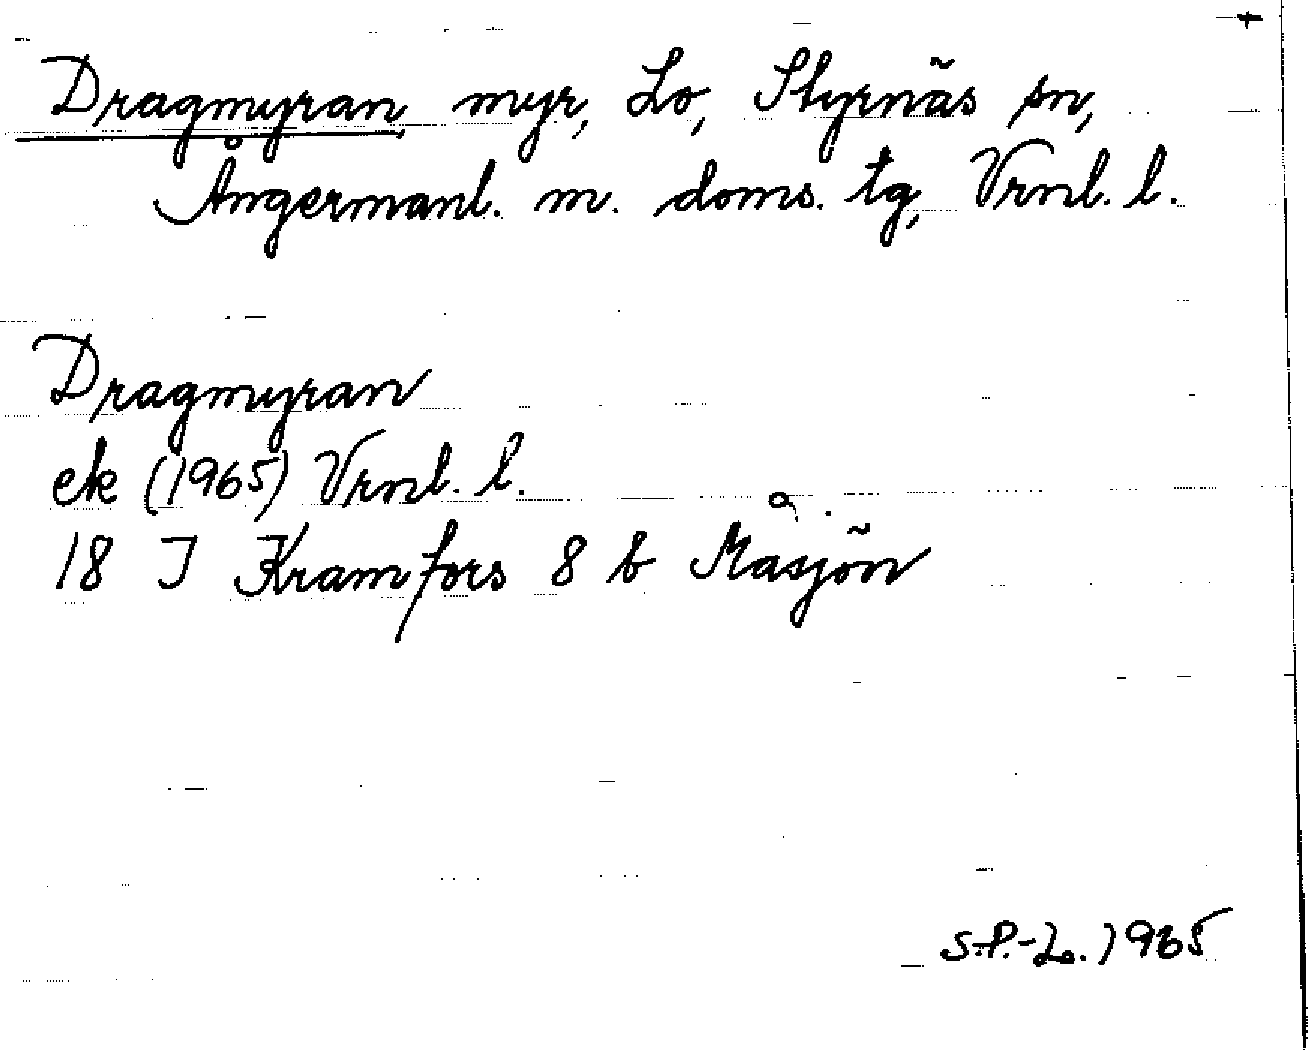 Dragmyran, myr, Lo, Styrnäs sn,
Ångermanl. m. doms. tg, Vrnl. l.
Dragmyran
ek (1965) Vrnl. l.
18 I Kramfors 8 b Måsjön
S.P.-Lo. 1965